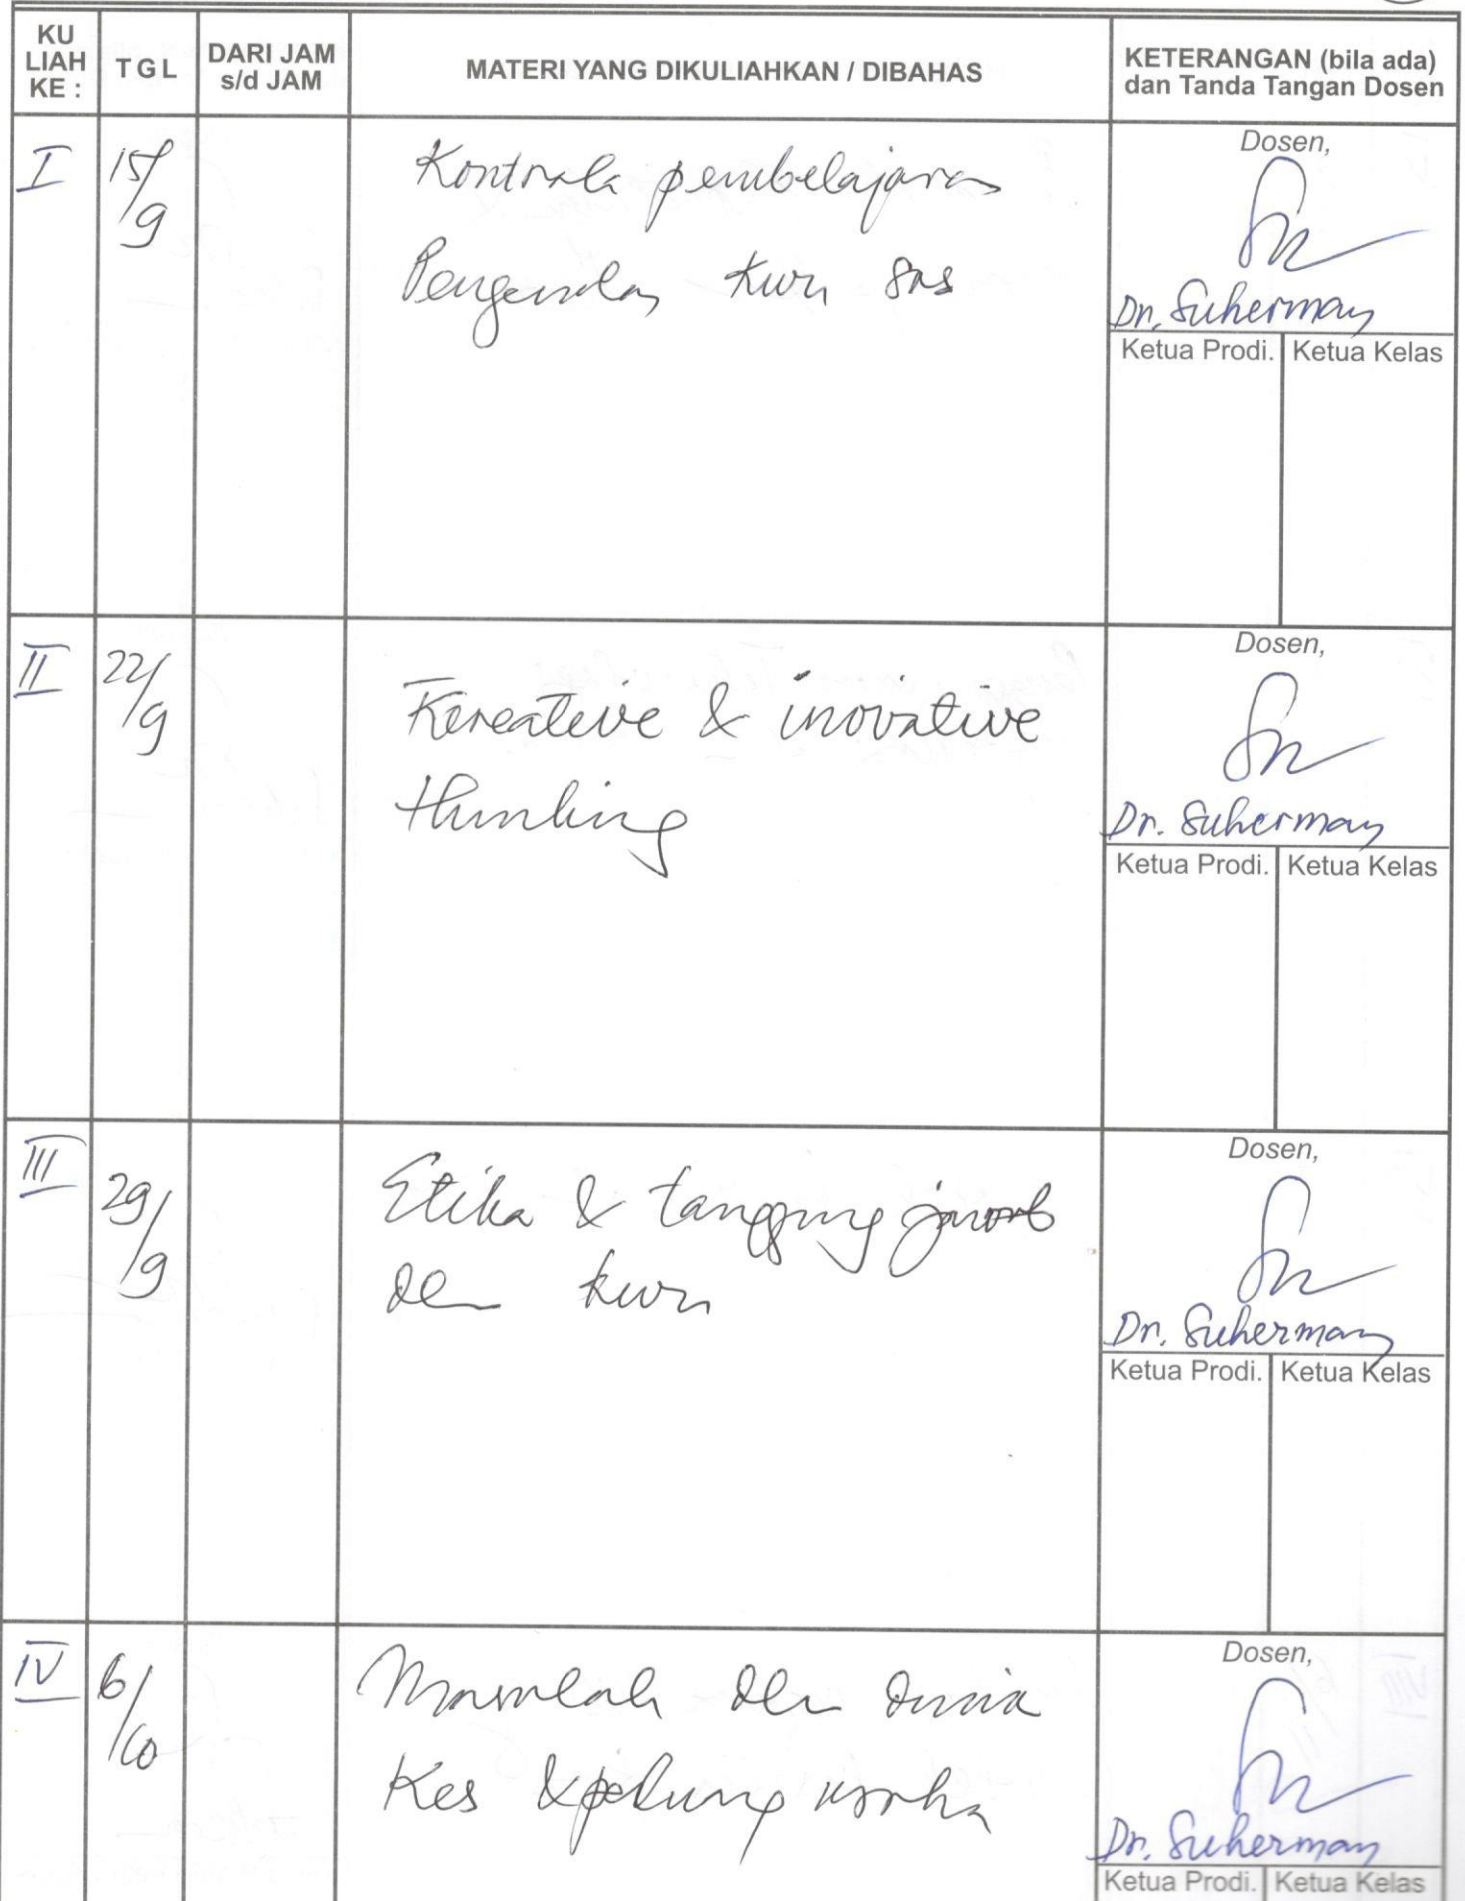 KU LIAH KE :
TGL
DARI JAM s/d JAM
MATERI YANG DIKULIAHKAN / DIBAHAS
KETERANGAN (bila ada) dan Tanda Tangan Dosen
I
15/9
Kontrak pembelajaran
Pengenalan kwu
Dosen,
Dr. Suherman
Ketua Prodi. Ketua Kelas
II
22/9
Kereative & inovative
thinking
Dosen,
Dr. Suherman
Ketua Prodi. Ketua Kelas
III
29/9
Etika & tanggung jawab
dlm kwu
Dosen,
Dr. Suherman
Ketua Prodi. Ketua Kelas
IV
6/10
Masalah dlm dunia
Kes & peluang usaha
Dosen,
Dr. Suherman
Ketua Prodi. Ketua Kelas